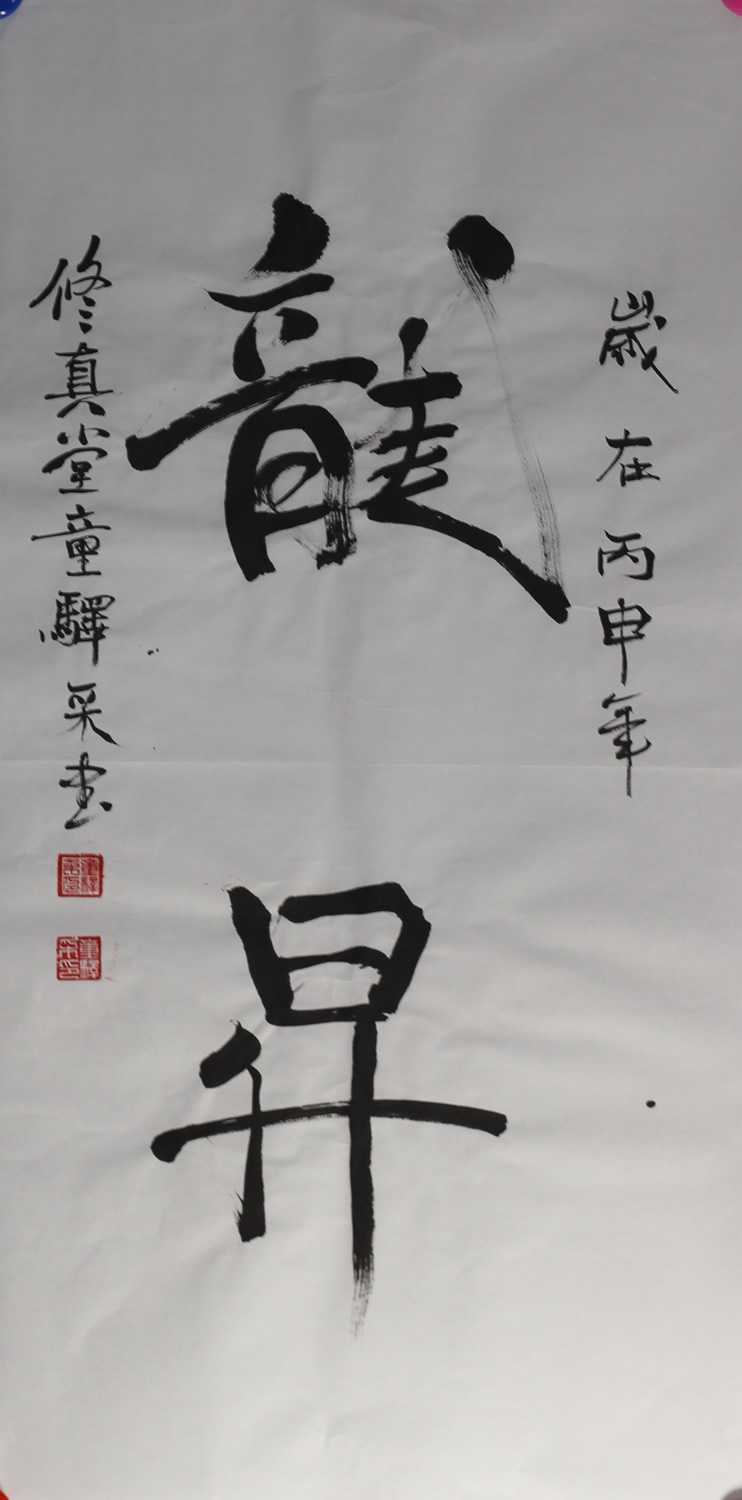 歲在丙申年
龍昇
修真堂童驛采书